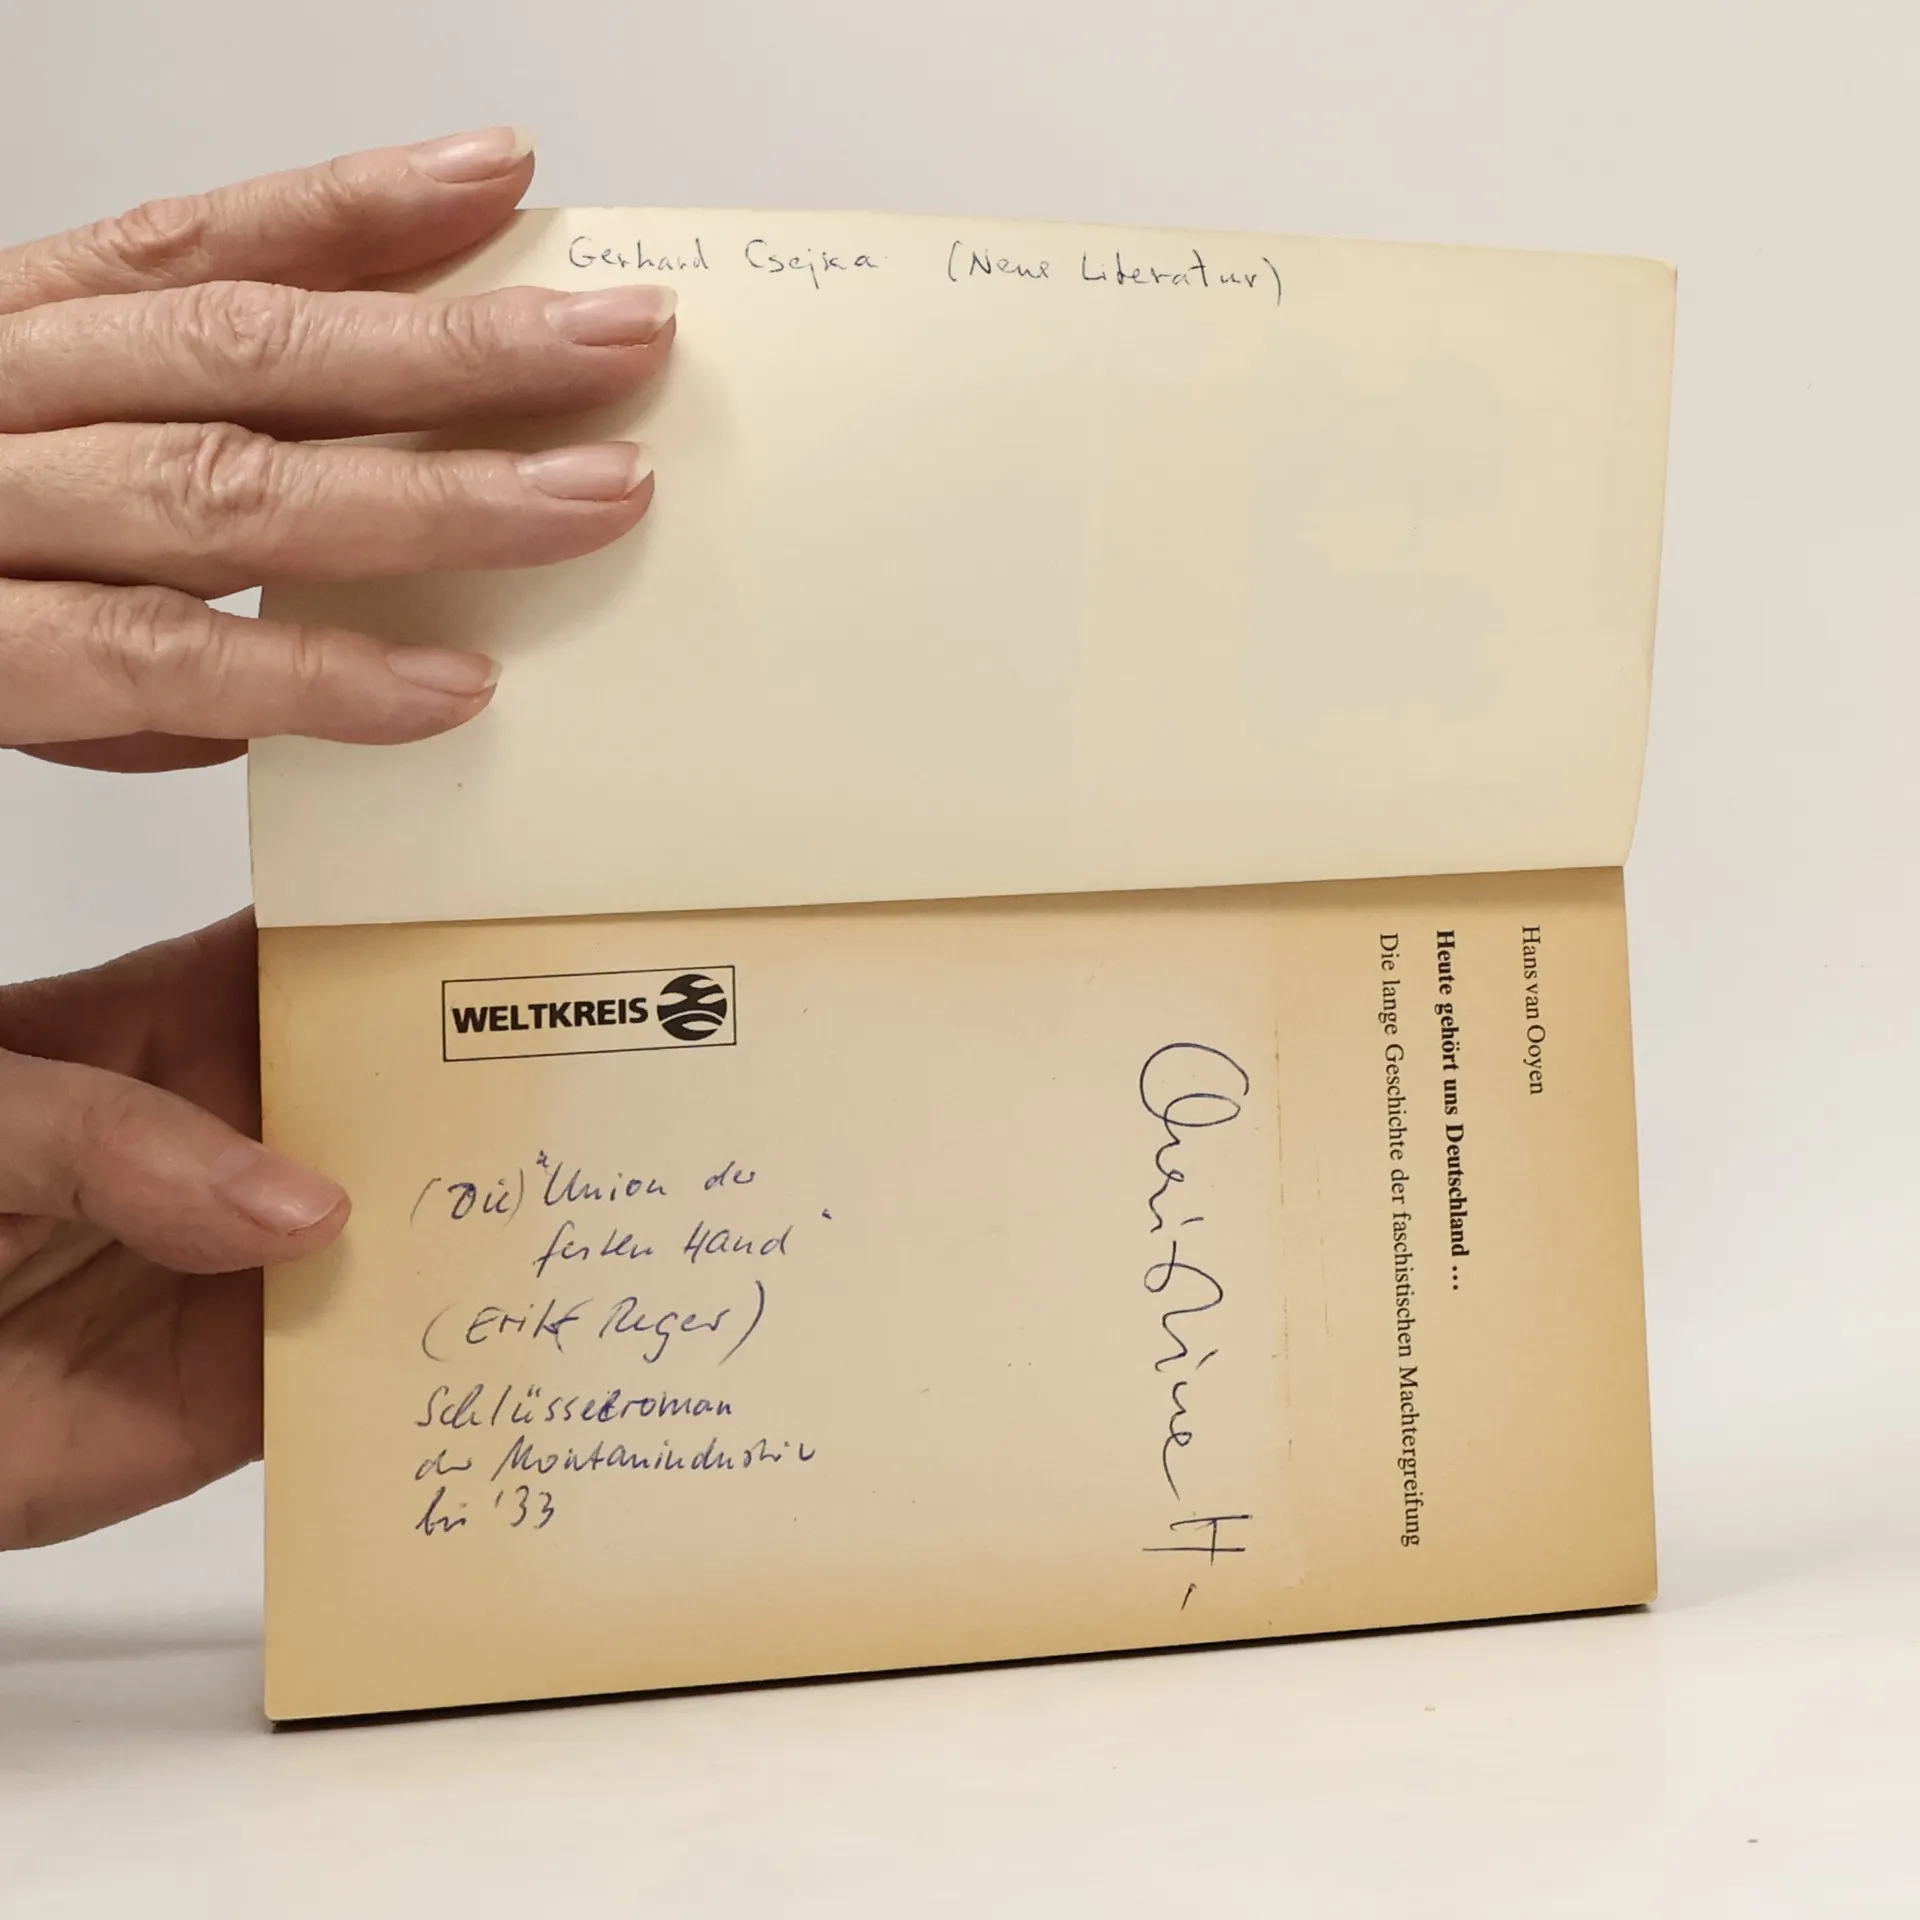 Gerhard Csejka (Neue Literatur)
Hans van Ooyen
Heute gehört uns Deutschland ...
Die lange Geschichte der faschistischen Machtergreifung
Christine H.
WELTKREIS
(Die) "Union der
festen Hand"
(Erik Reger)
Schlüsselroman
der Montanindustrie
bis '33